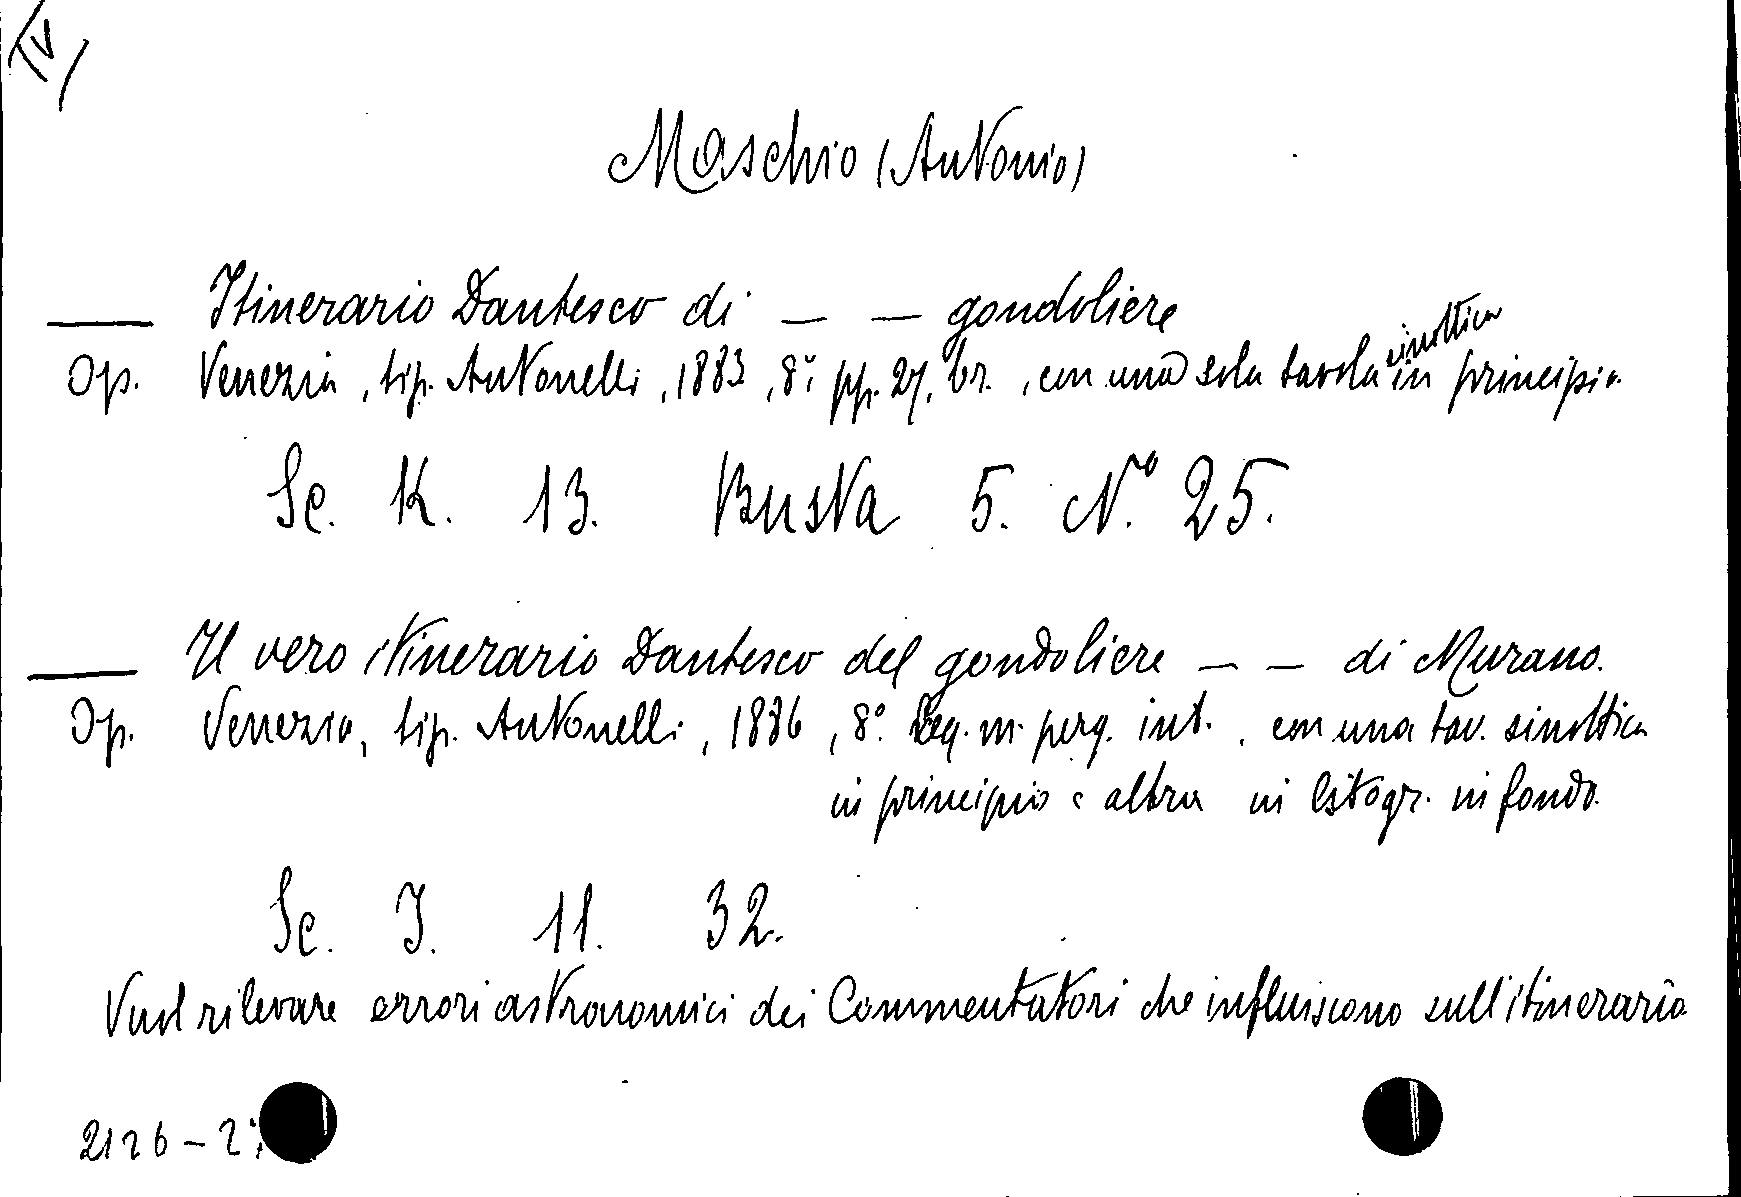 IV
Maschio (Antonio)
— Itinerario Dantesco di — — gondoliere
Op. Venezia, tip. Antonelli, 1883, 8°, pp. 27, br., con una sola tavola sinottica in principio.
Sc. K. 13. Busta 5. N.° 25.
— Il vero itinerario Dantesco del gondoliere — — di Murano.
Op. Venezia, tip. Antonelli, 1886, 8.° Leg. m. perg. int., con una tav. sinottica
in principio e altra in litogr. in fondo.
Sc. I. 11. 32.
Vuol rilevare errori astronomici dei Commentatori che influiscono sull'itinerario
2126 - 27